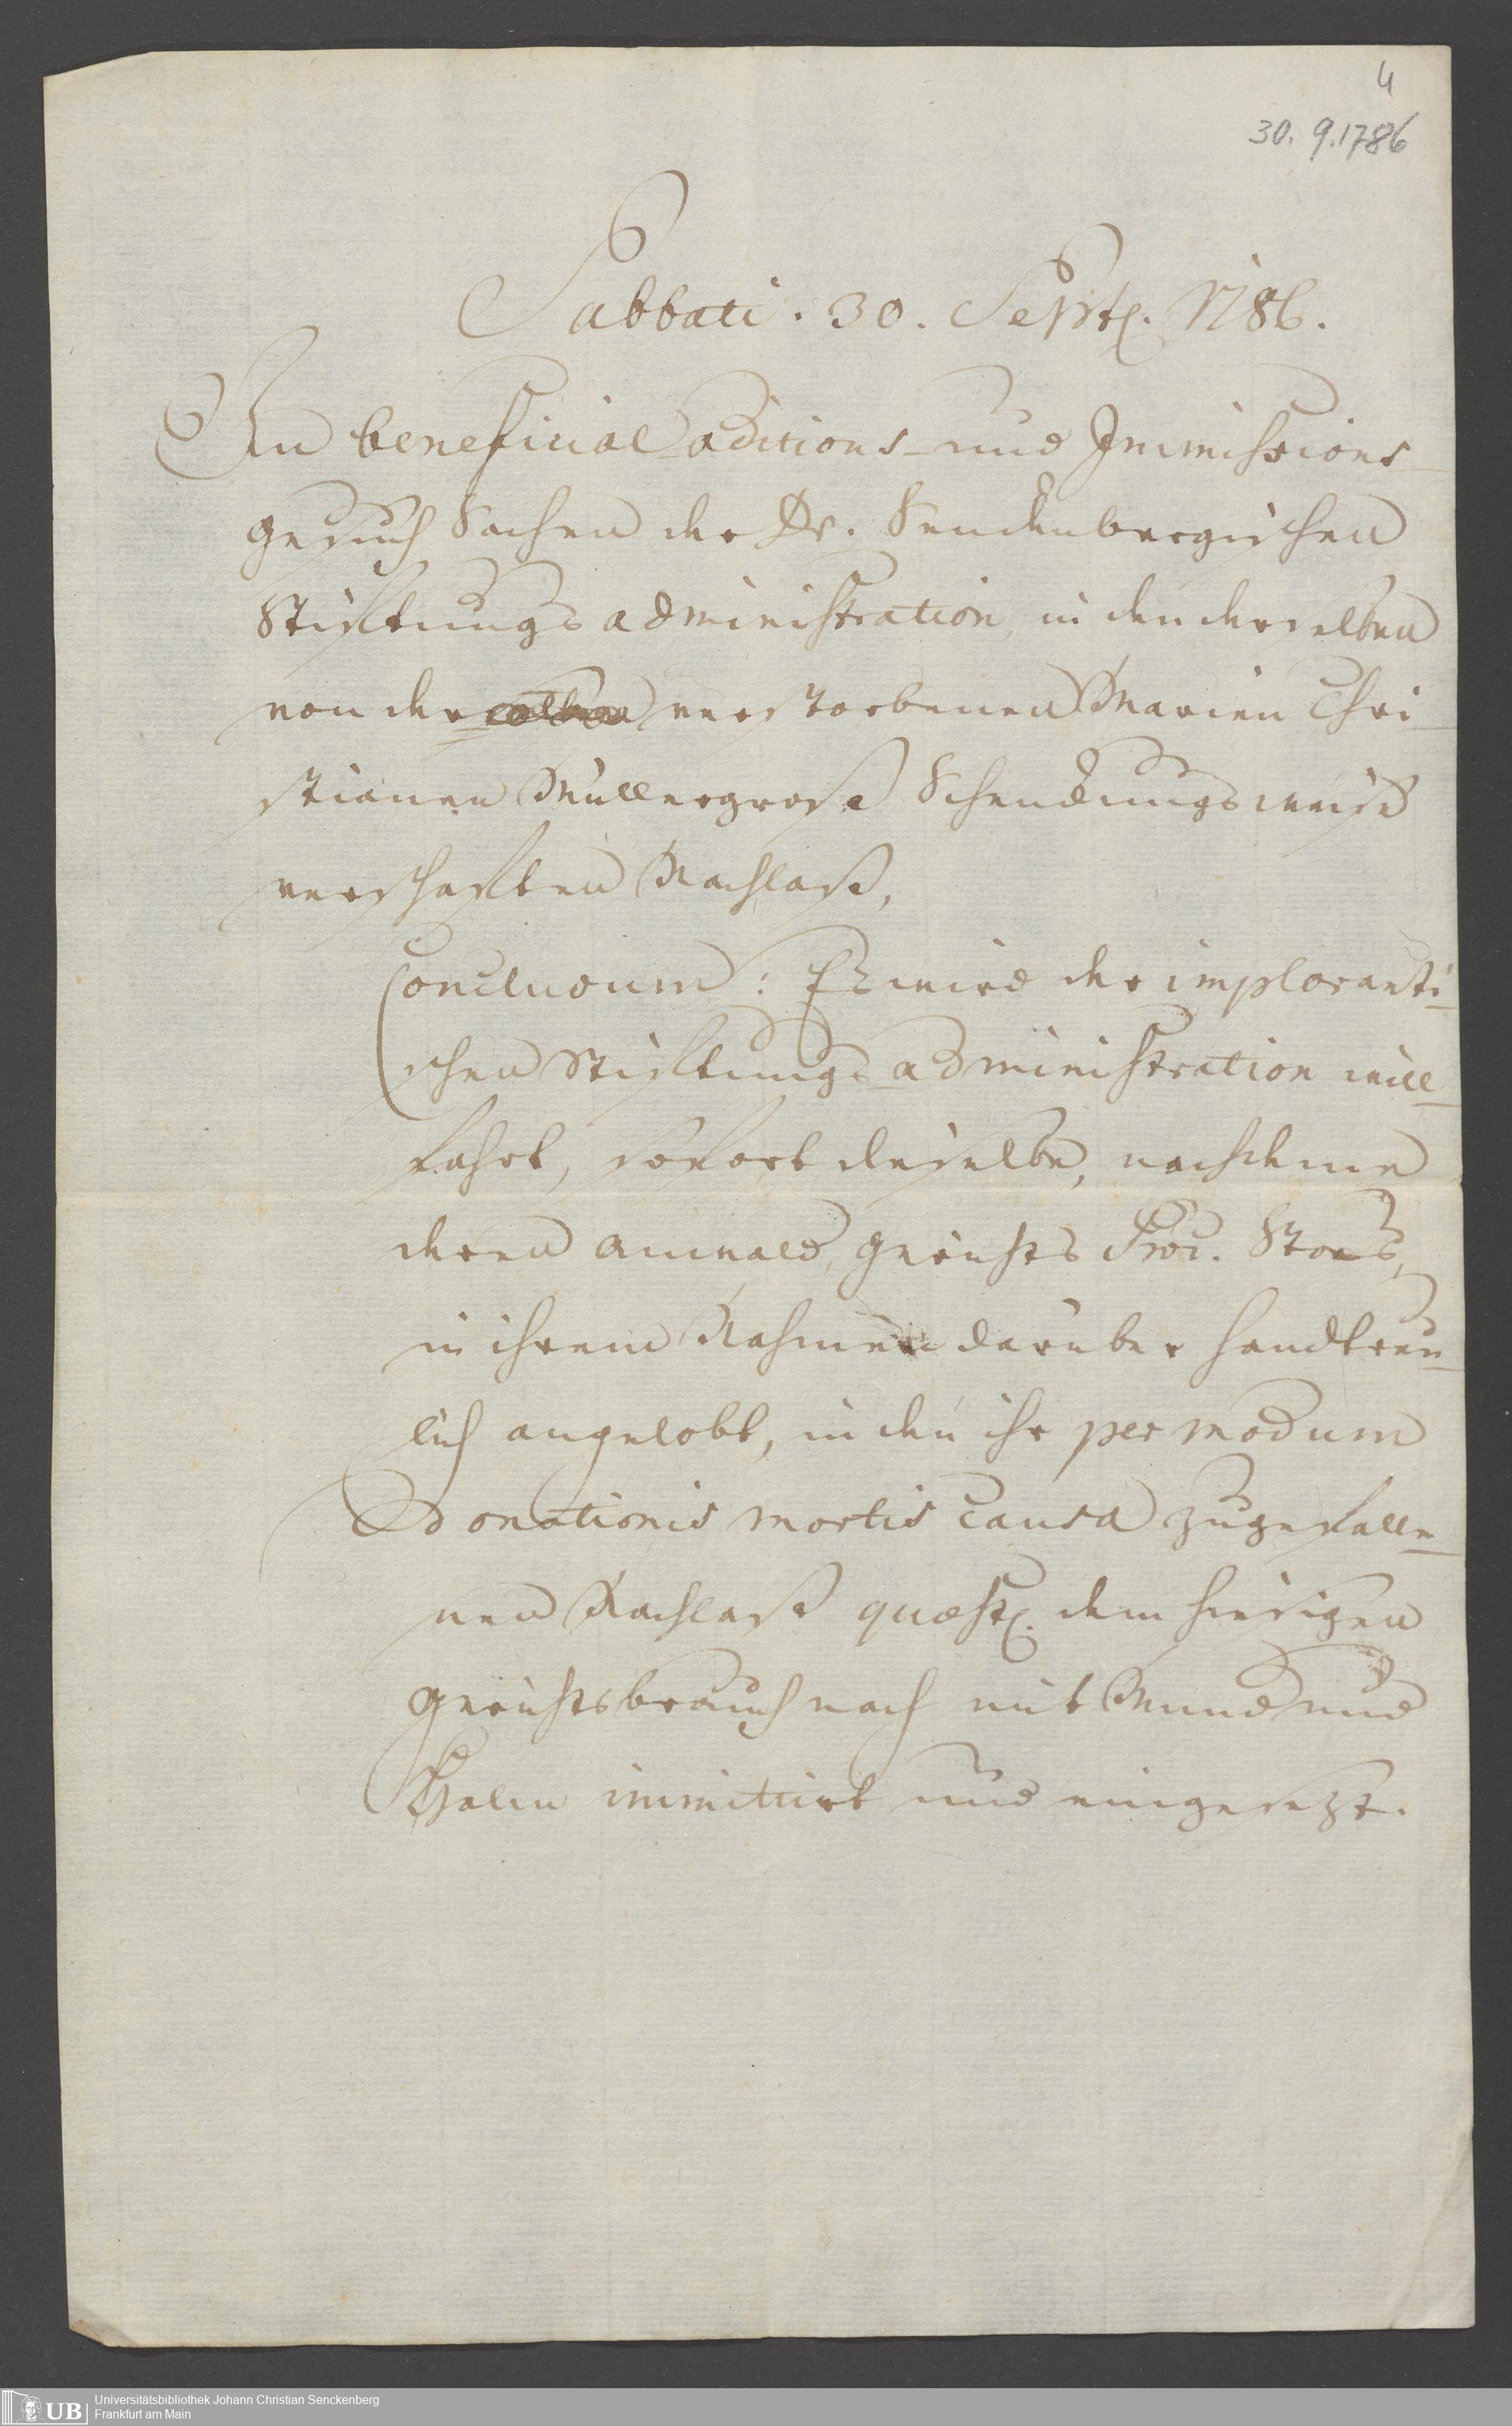 4
30. 9. 1786
Sabbati. 30. Sept. 1786.
In beneficial aditions- und Immissions-
gesuch Sachen der Dr. Senckenbergischen
Stiftungs administration, in den derselben
von der verstorbenen Marien Chri-
stianen Müllergroße Schenckungsweise
verschafften Nachlaß,
Conclusum: Es wird der imploranti-
schen Stiftungs-administration will-
fahrt, sofort dieselbe, nachdeme
deren anwald, Gerichts Proc. Stoes,
in ihrem Nahmen darüber handtreu-
lich angelobt, in den ihr per modum
Donationis mortis causa zugefalle-
nen Nachlaß quæst. dem hiesigen
Gerichtsbrauch nach mit Mund und
Halm immittirt und eingesezt.
UB
Universitätsbibliothek Johann Christian Senckenberg
Frankfurt am Main